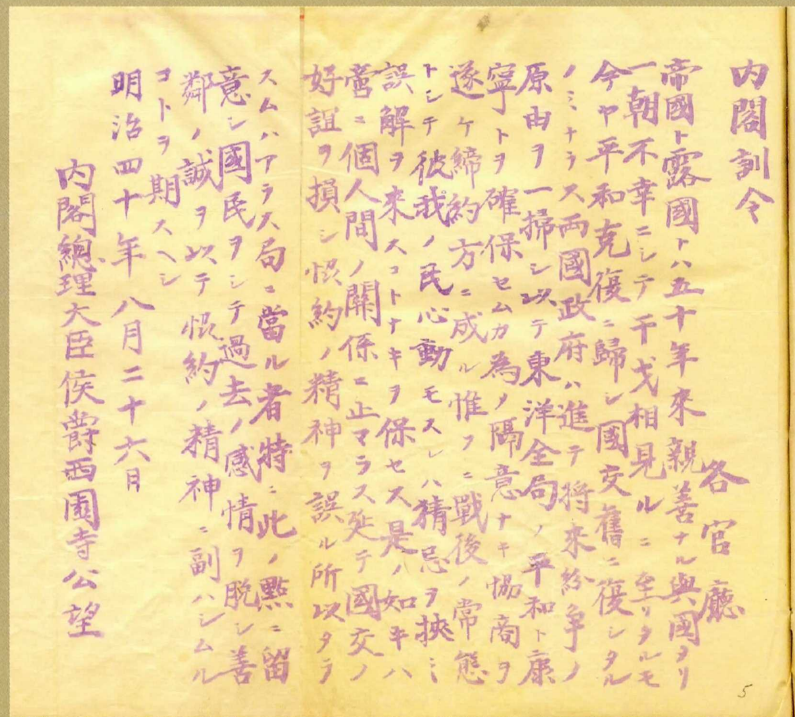 内閣訓令
各官廳
帝國ト露國トハ五十年來親善ナル與國タリ
一朝不幸ニシテ干戈相見ルニ至リタルモ
今ヤ平和克復ニ歸シ國交舊ニ復シタル
ノミナラス両國政府ハ進テ将來紛争ノ
原由ヲ一掃シ以テ東洋全局ノ平和ト康
寧トヲ確保セムカ為ノ隔意ナキ協商ヲ
遂ケ締約方ニ成ル惟フニ戰後ノ常態
トシテ彼我ノ民心動モスレハ猜忌ヲ挾ミ
誤解ヲ来スコトナキヲ保セス是ノ如キハ
啻ニ個人間ノ關係ニ止マラス延テ國交ノ
好誼ヲ損シ恊約ノ精神ヲ誤ル所以タラ
スムハアラス局ニ當ル者特ニ此ノ點ニ留
意シ國民ヲシテ過去ノ感情ヲ脱シ善
鄰ノ誠ヲ以テ恊約ノ精神ニ副ハシムル
コトヲ期スヘシ
明治四十年八月二十六日
内閣總理大臣侯爵西園寺公望
5